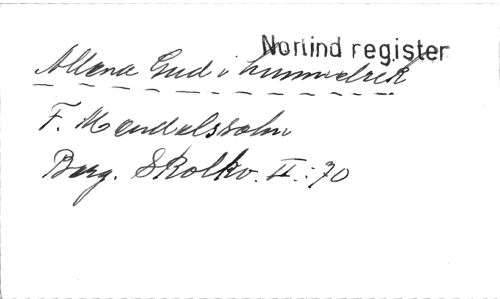 Norlind register
Allena Gud i himmelrik
F. Mendelssohn
Berg. Skolkv. II.:70